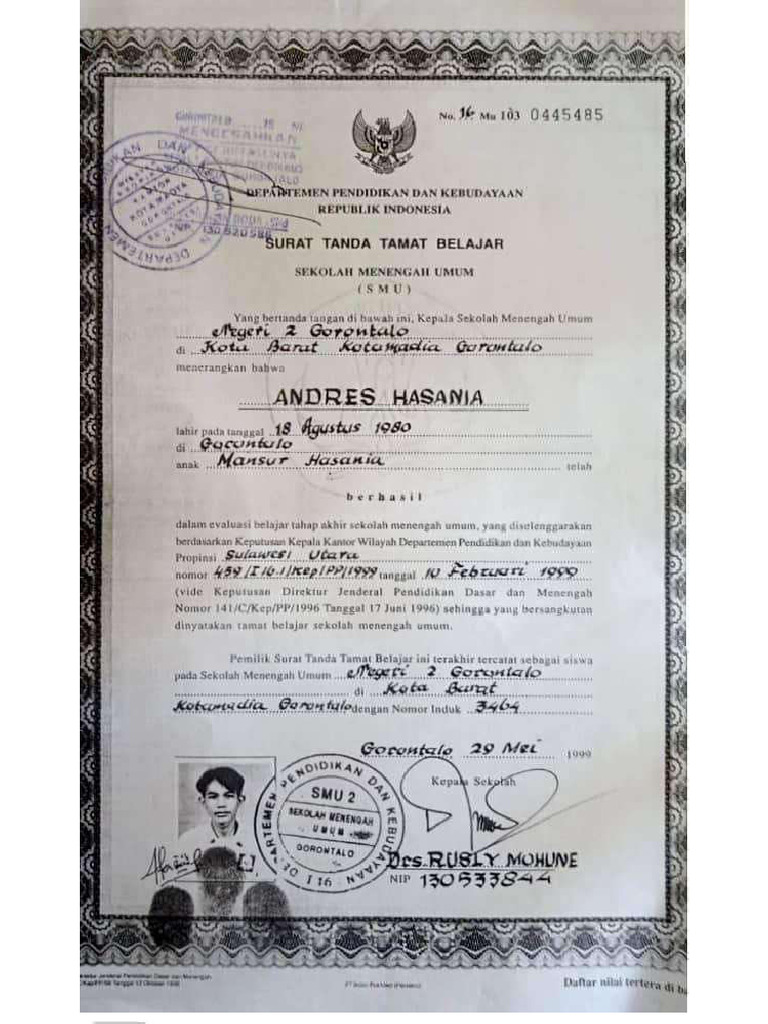 No. 16 Mu 103 0445485
GORONTALO
MENGESAHKAN
DEPARTEMEN PENDIDIKAN DAN KEBUDAYAAN
REPUBLIK INDONESIA
SURAT TANDA TAMAT BELAJAR
SEKOLAH MENENGAH UMUM
( S M U )
Yang bertanda tangan di bawah ini, Kepala Sekolah Menengah Umum
Negeri 2 Gorontalo
di Kota Barat Kotamadia Gorontalo
menerangkan bahwa
ANDRES HASANIA
lahir pada tanggal 18 Agustus 1980
di Gorontalo
anak Mansur Hasania telah
berhasil
dalam evaluasi belajar tahap akhir sekolah menengah umum, yang diselenggarakan
berdasarkan Keputusan Kepala Kantor Wilayah Departemen Pendidikan dan Kebudayaan
Propinsi Sulawesi Utara
nomor 459/I16.1/Kep/PP/1999 tanggal 10 Februari 1999
(vide Keputusan Direktur Jenderal Pendidikan Dasar dan Menengah
Nomor 141/C/Kep/PP/1996 Tanggal 17 Juni 1996) sehingga yang bersangkutan
dinyatakan tamat belajar sekolah menengah umum.
Pemilik Surat Tanda Tamat Belajar ini terakhir tercatat sebagai siswa
pada Sekolah Menengah Umum Negeri 2 Gorontalo
di Kota Barat
Kotamadia Gorontalo dengan Nomor Induk 3464
Gorontalo 29 Mei 1999
Kepala Sekolah
DEPARTEMEN PENDIDIKAN DAN KEBUDAYAAN
SMU 2
SEKOLAH MENENGAH
UMUM
GORONTALO
I 16
Drs. RUSLY MOHUNE
NIP 130533844
Jenderal Pendidikan Dasar dan Menengah
Daftar nilai tertera di